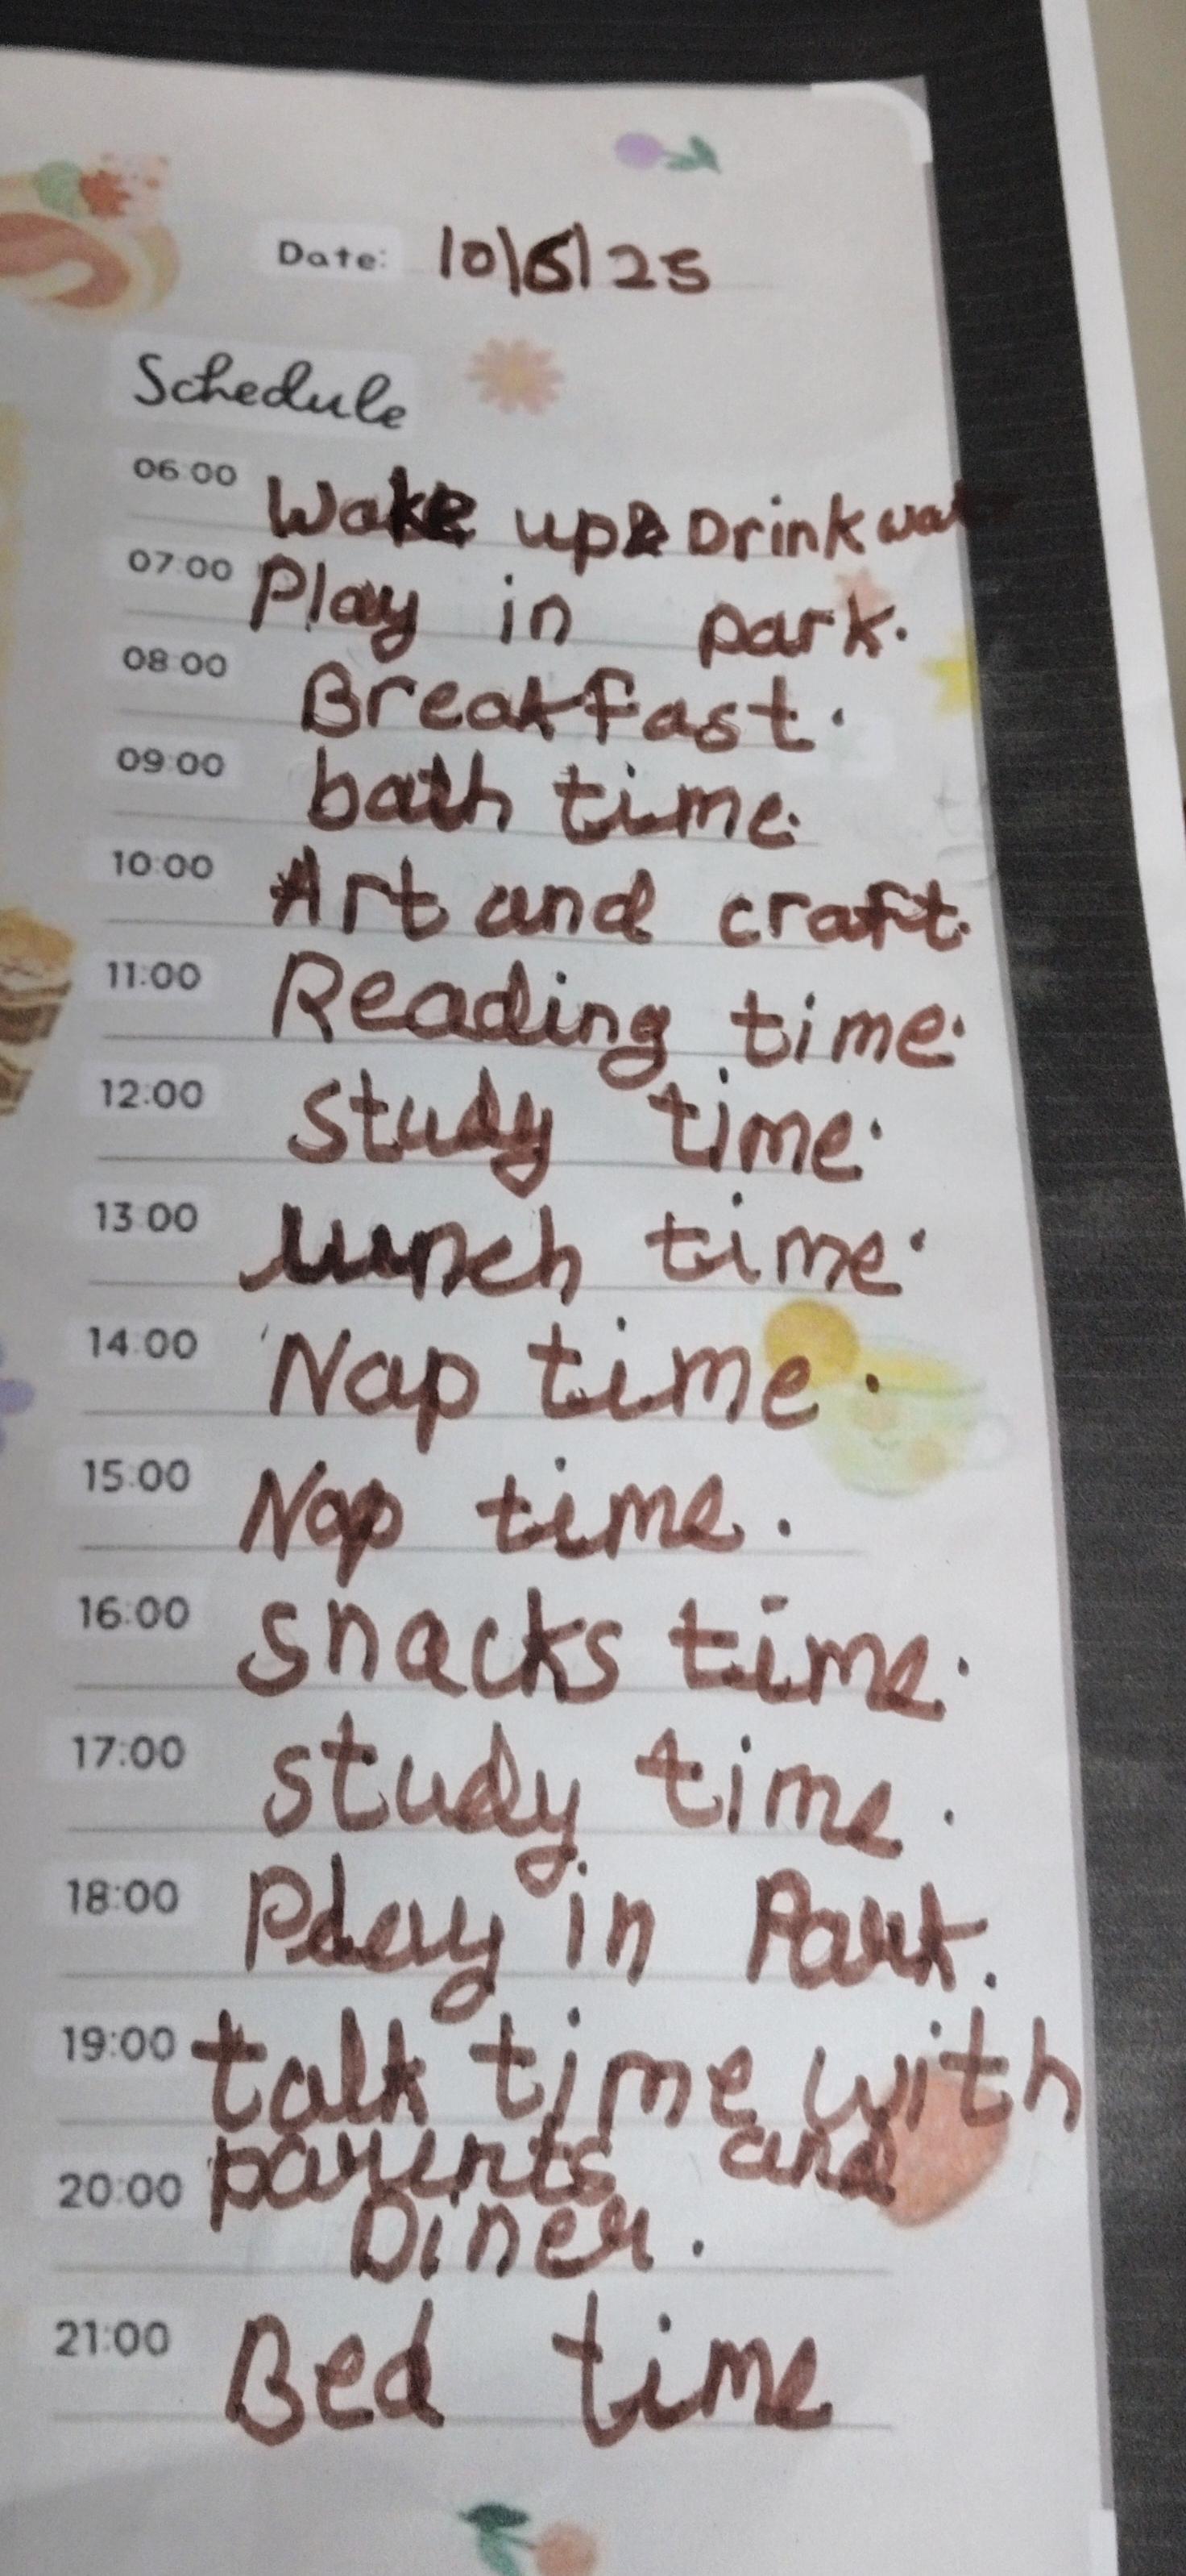 Date: 10\6/25
Schedule
06:00 Wake up & Drink wat
07:00 Play in park.
08:00 Breakfast.
09:00 bath time.
10:00 Art and craft.
11:00 Reading time.
12:00 study time.
13:00 lunch time.
14:00 Nap time.
15:00 Nap time.
16:00 snacks time.
17:00 study time.
18:00 Play in Park.
19:00 talk time with
parents and
20:00 Diner.
21:00 Bed time